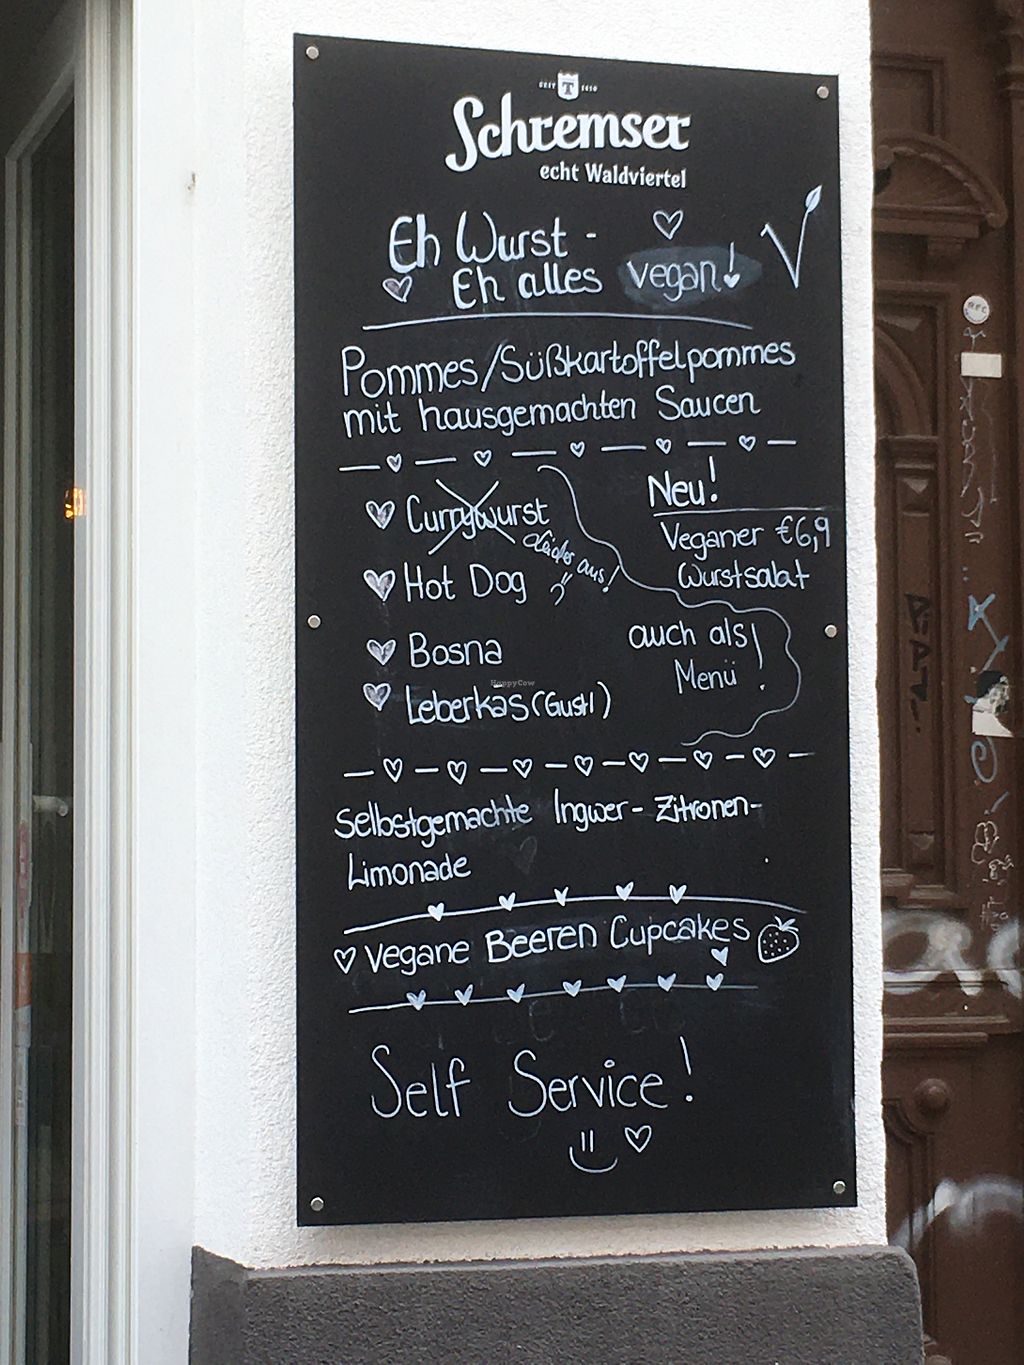 SEIT 1410
Schremser
echt Waldviertel
Eh Wurst -
Eh alles vegan!
Pommes/Süßkartoffelpommes
mit hausgemachten Saucen
Currywurst
leider aus!
Hot Dog
Bosna
Leberkäs (Gustl)
Neu!
Veganer €6,9
Wurstsalat
auch als
Menü !
HappyCow
Selbstgemachte Ingwer-Zitronen-
Limonade
Vegane Beeren Cupcakes
Self Service!